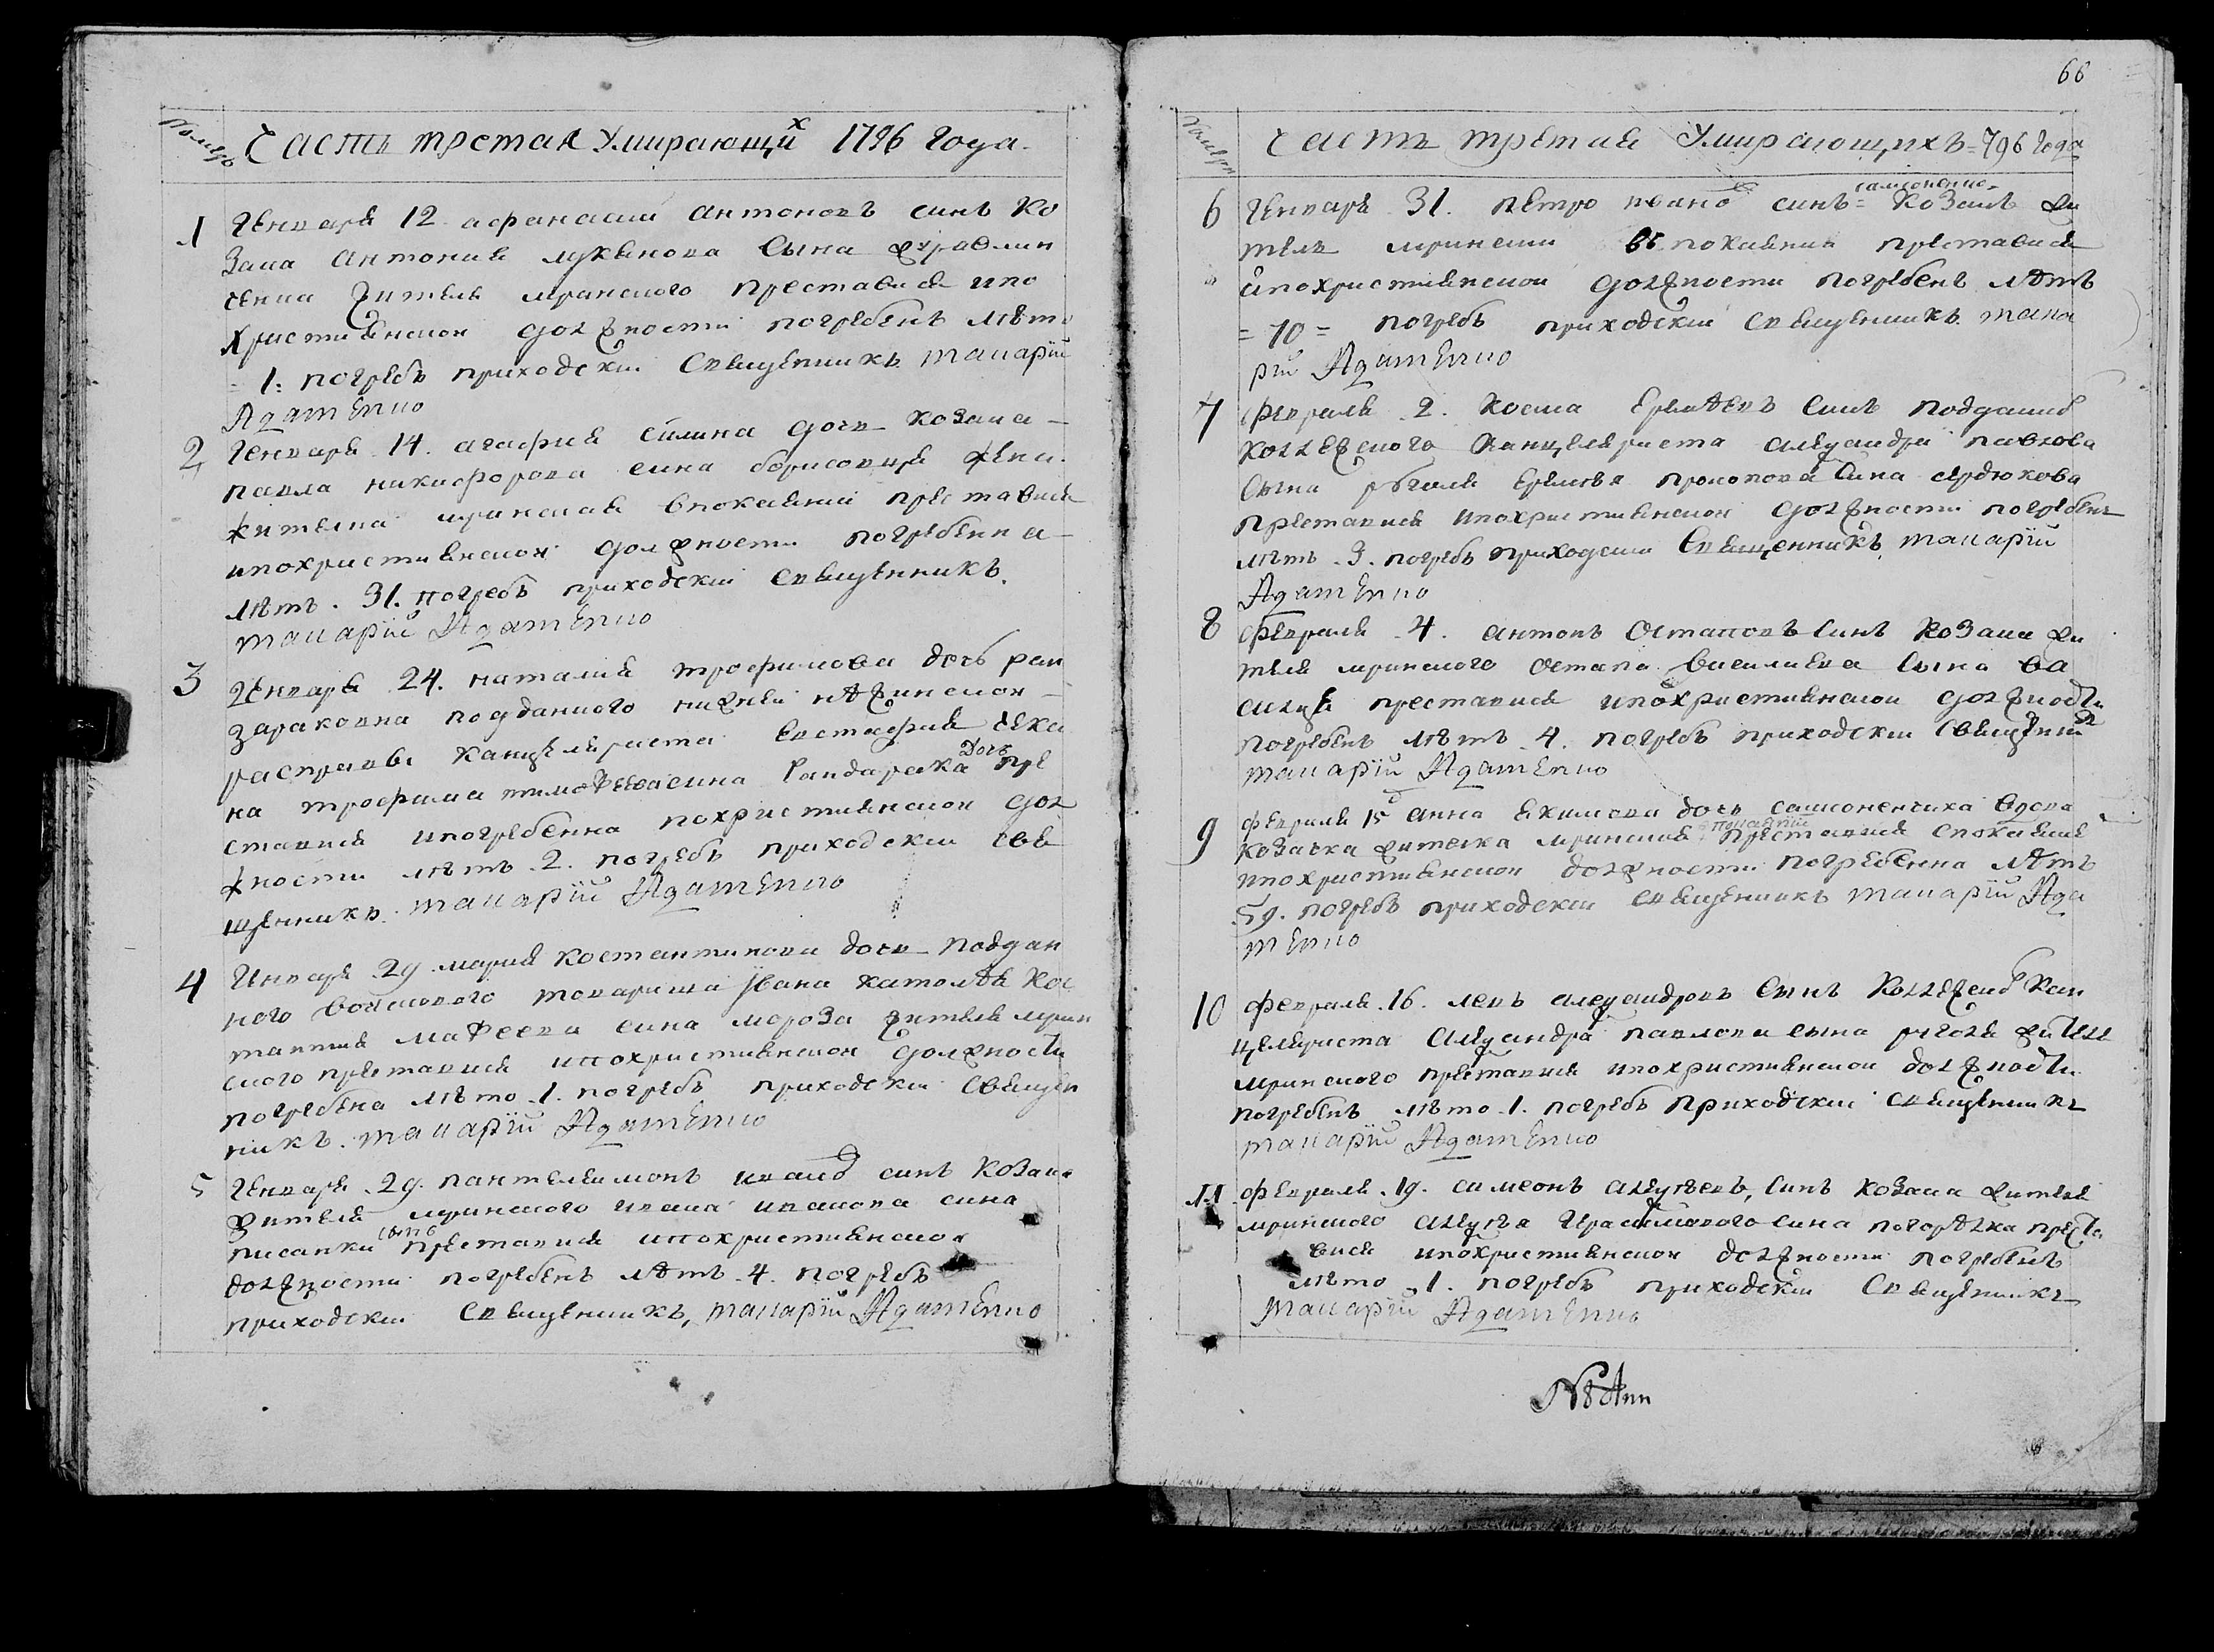 Часть третая Умирающих 1796 Года.
1 Генваря 12 афанасии антоновъ синъ Ко
зака антония лукянова Сына
ченка жителя мринского преставися ипо
християнской должности погребенъ лѣто
= 1: погребъ приходскии Священникъ макарїй
Адаменко
2 Генваря 14. агафия силина дочь козака
павла никифорова сина борисовця жена
жителка мринская впокаянии преставися
ипохристиянской должности погребенна
лѣтъ. 31. погребъ приходскии священникъ.
макарїй Адаменко
3 Генваря 24. наталия трофимова дочь ган
дараковна подданного нижнеи нѣжинской
расправы канцеляриста евстафия
на трофима тимофѣева сина Гандарака дочь пре
ставися ипогребенна похристиянской дол
жности лѣтъ 2. погребъ приходскии свя
щенникъ. макарїй Адаменко
4 Генваря 29 мария костантинова дочь поддан
ного войскового товариша Ивана Кос
тантия маѳеева сина мороза жителя мрин
ского преставися ипохристиянской должности
погребена лѣто 1. погребъ приходскии Священ
никъ. макарїй Адаменко
5 Генваря 29. пантелеимонъ ивановъ синъ козака
жителя мринского ивана иванова сина
писанки синъ преставися ипохристиянской
должности погребенъ лѣтъ 4. погребъ
приходскии Священникъ, макарїй Адаменко
66
Часть третая Умирающихъ =796 Года
6 Генваря 31. петро ивановъ синъ = козакъ жи
тель мринскии въ покаянии преставися
ипохристиянской должности погребенъ лѣтъ
= 70 = погребъ приходскии священникъ мака
рїй Адаменко
7 Февраля 2. косма ермѣевъ синъ подданого
коллежского канцеляриста александра павлова
сына ригаля прокопова сина сердюкова
преставися ипохристиянской должности погребенъ
лѣтъ 3. погребъ приходскии Священникъ макарїй
Адаменко
8 Февраля 4. антонъ Остаповъ синъ козака жи
теля мринского остапа василиева сына ва
преставися ипохристиянской должности
погребенъ лѣтъ 4. погребъ приходскии священникъ
макарїй Адаменко
9 Февраля 15 анна якимова дочь самсоненчиха вдова
козачка жителка мринская преставися спокаяния
ипохристиянской должности погребенна лѣтъ
59. погребъ приходскии священникъ макарїй Ада
менко
10 Февраля 16. левъ александровъ сынъ коллежского кан
целяриста александра павлова сына ригаля жителя
мринского преставися ипохристиянской должности
погребенъ лѣто 1. погребъ приходскии священникъ
макарїй Адаменко
11 Февраля 19. симеонъ алексѣевъ, синъ козака жителя
мринского алексѣя Герасимового сина погорѣлка преста
вися ипохристиянской должности погребенъ
лѣто 1. погребъ приходскии Священникъ
макарїй Адаменко